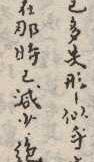 已多失形、似乎
在那時已减少、絕